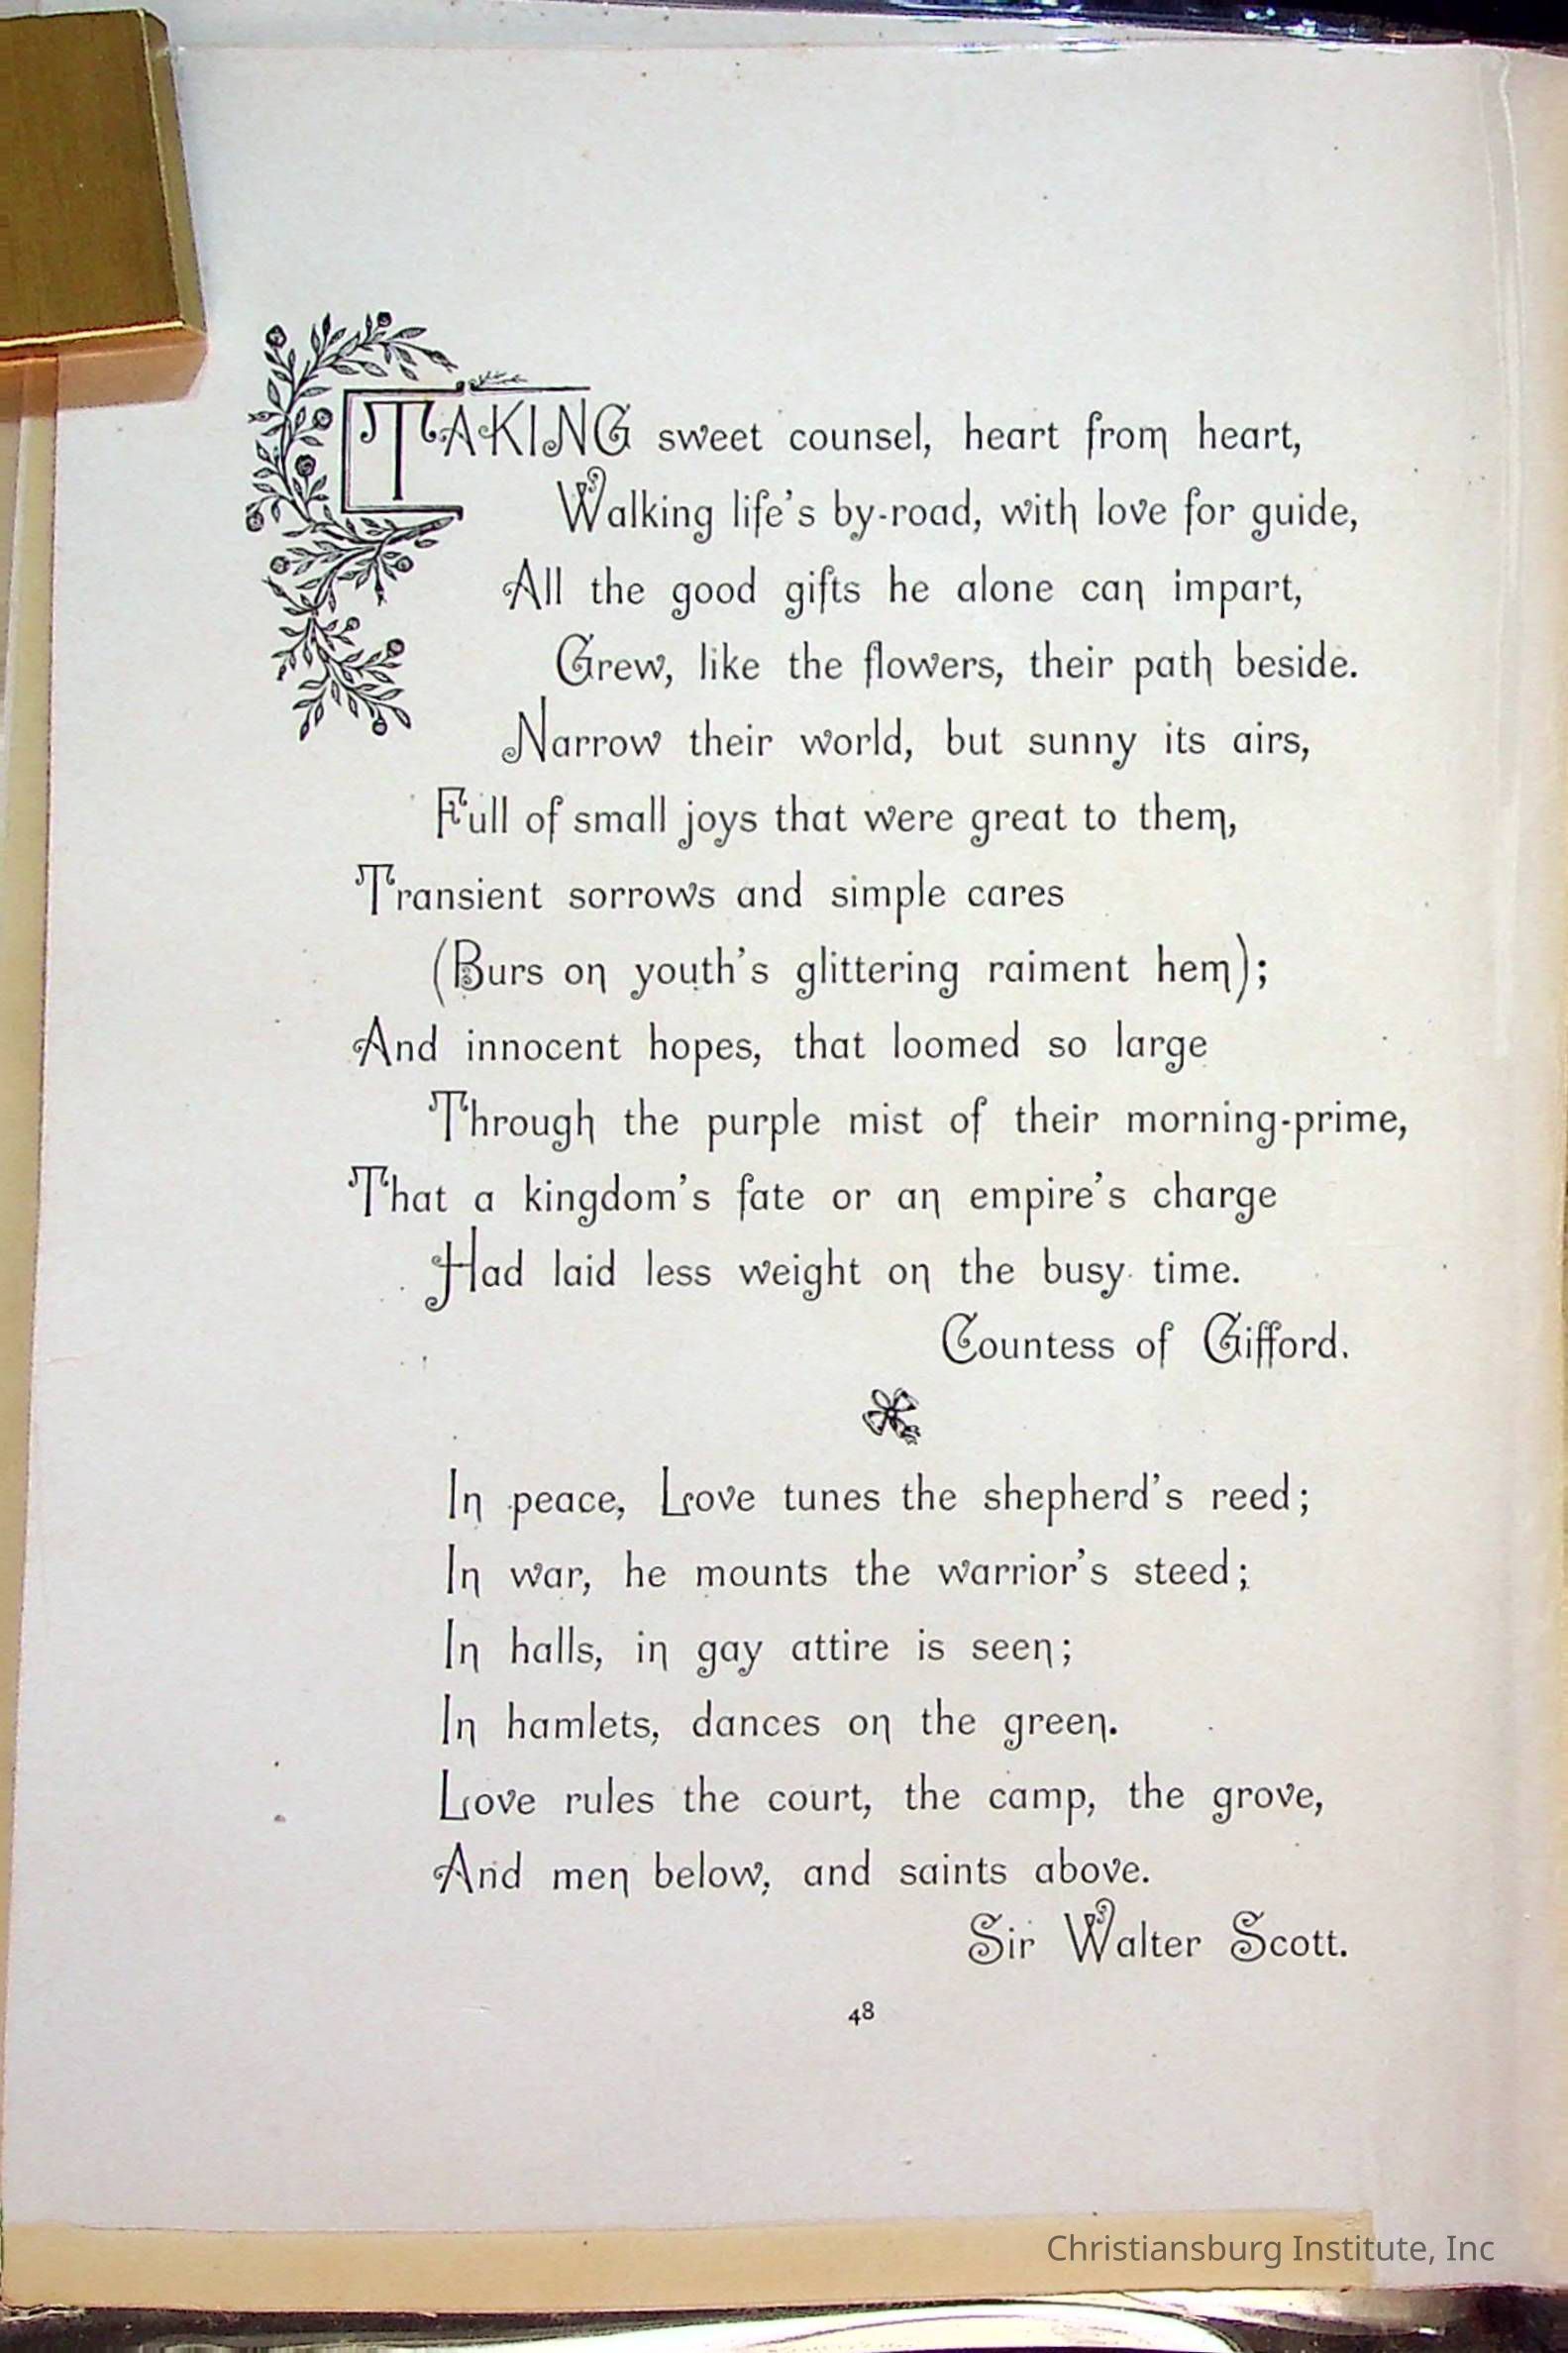 TAKING sweet counsel, heart from heart,
Walking life's by-road, with love for guide,
All the good gifts he alone can impart,
Grew, like the flowers, their path beside.
Narrow their world, but sunny its airs,
Full of small joys that were great to them,
Transient sorrows and simple cares
(Burs on youth's glittering raiment hem);
And innocent hopes, that loomed so large
Through the purple mist of their morning-prime,
That a kingdom's fate or an empire's charge
Had laid less weight on the busy time.
Countess of Gifford.
In peace, Love tunes the shepherd's reed;
In war, he mounts the warrior's steed;
In halls, in gay attire is seen;
In hamlets, dances on the green.
Love rules the court, the camp, the grove,
And men below, and saints above.
Sir Walter Scott.
48
Christiansburg Institute, Inc